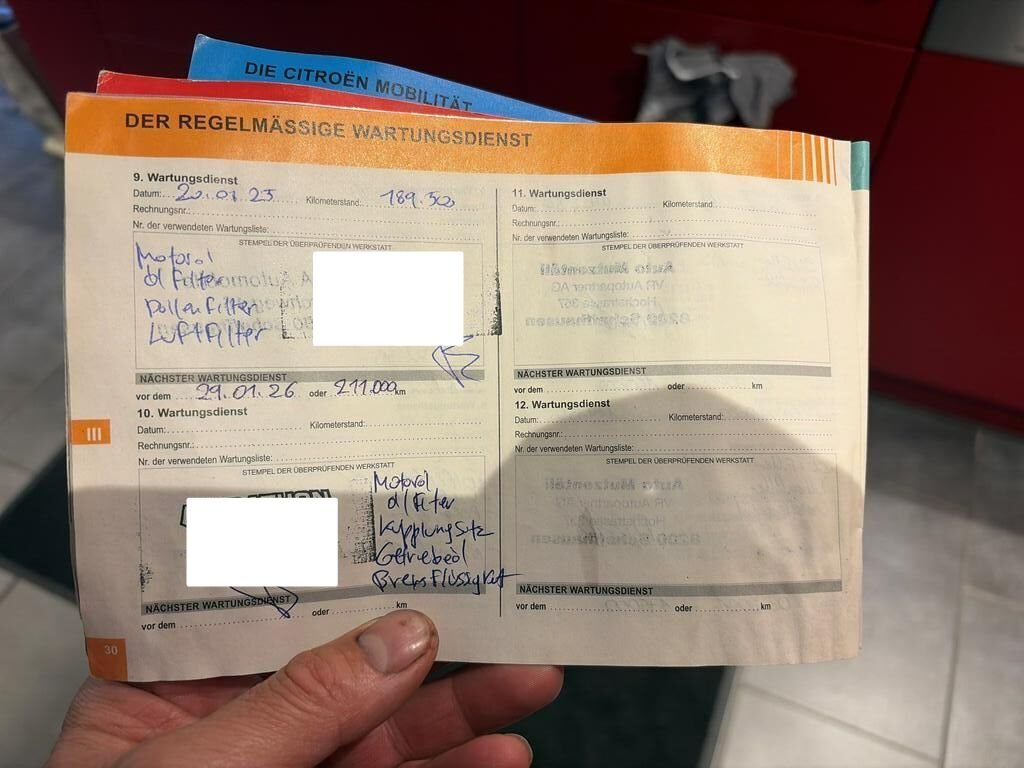 DIE CITROËN MOBILITÄT
DER REGELMÄSSIGE WARTUNGSDIENST
9. Wartungsdienst
Datum: Kilometerstand: 189.500
Rechnungsnr.:
Nr. der verwendeten Wartungsliste:
STEMPEL DER ÜBERPRÜFENDEN WERKSTATT
Motoröl
öl Filter
Pollenfilter
Luftfilter
NÄCHSTER WARTUNGSDIENST
vor dem 29.01.26 oder 211.000 km
10. Wartungsdienst
Datum: Kilometerstand:
Rechnungsnr.:
Nr. der verwendeten Wartungsliste:
STEMPEL DER ÜBERPRÜFENDEN WERKSTATT
Motoröl
öl Filter
Kupplungsitz
Getriebeöl
NÄCHSTER WARTUNGSDIENST
vor dem oder km
11. Wartungsdienst
Datum: Kilometerstand:
Rechnungsnr.:
Nr. der verwendeten Wartungsliste:
STEMPEL DER ÜBERPRÜFENDEN WERKSTATT
NÄCHSTER WARTUNGSDIENST
vor dem oder km
12. Wartungsdienst
Datum: Kilometerstand:
Rechnungsnr.:
Nr. der verwendeten Wartungsliste:
STEMPEL DER ÜBERPRÜFENDEN WERKSTATT
NÄCHSTER WARTUNGSDIENST
vor dem oder km
III
30